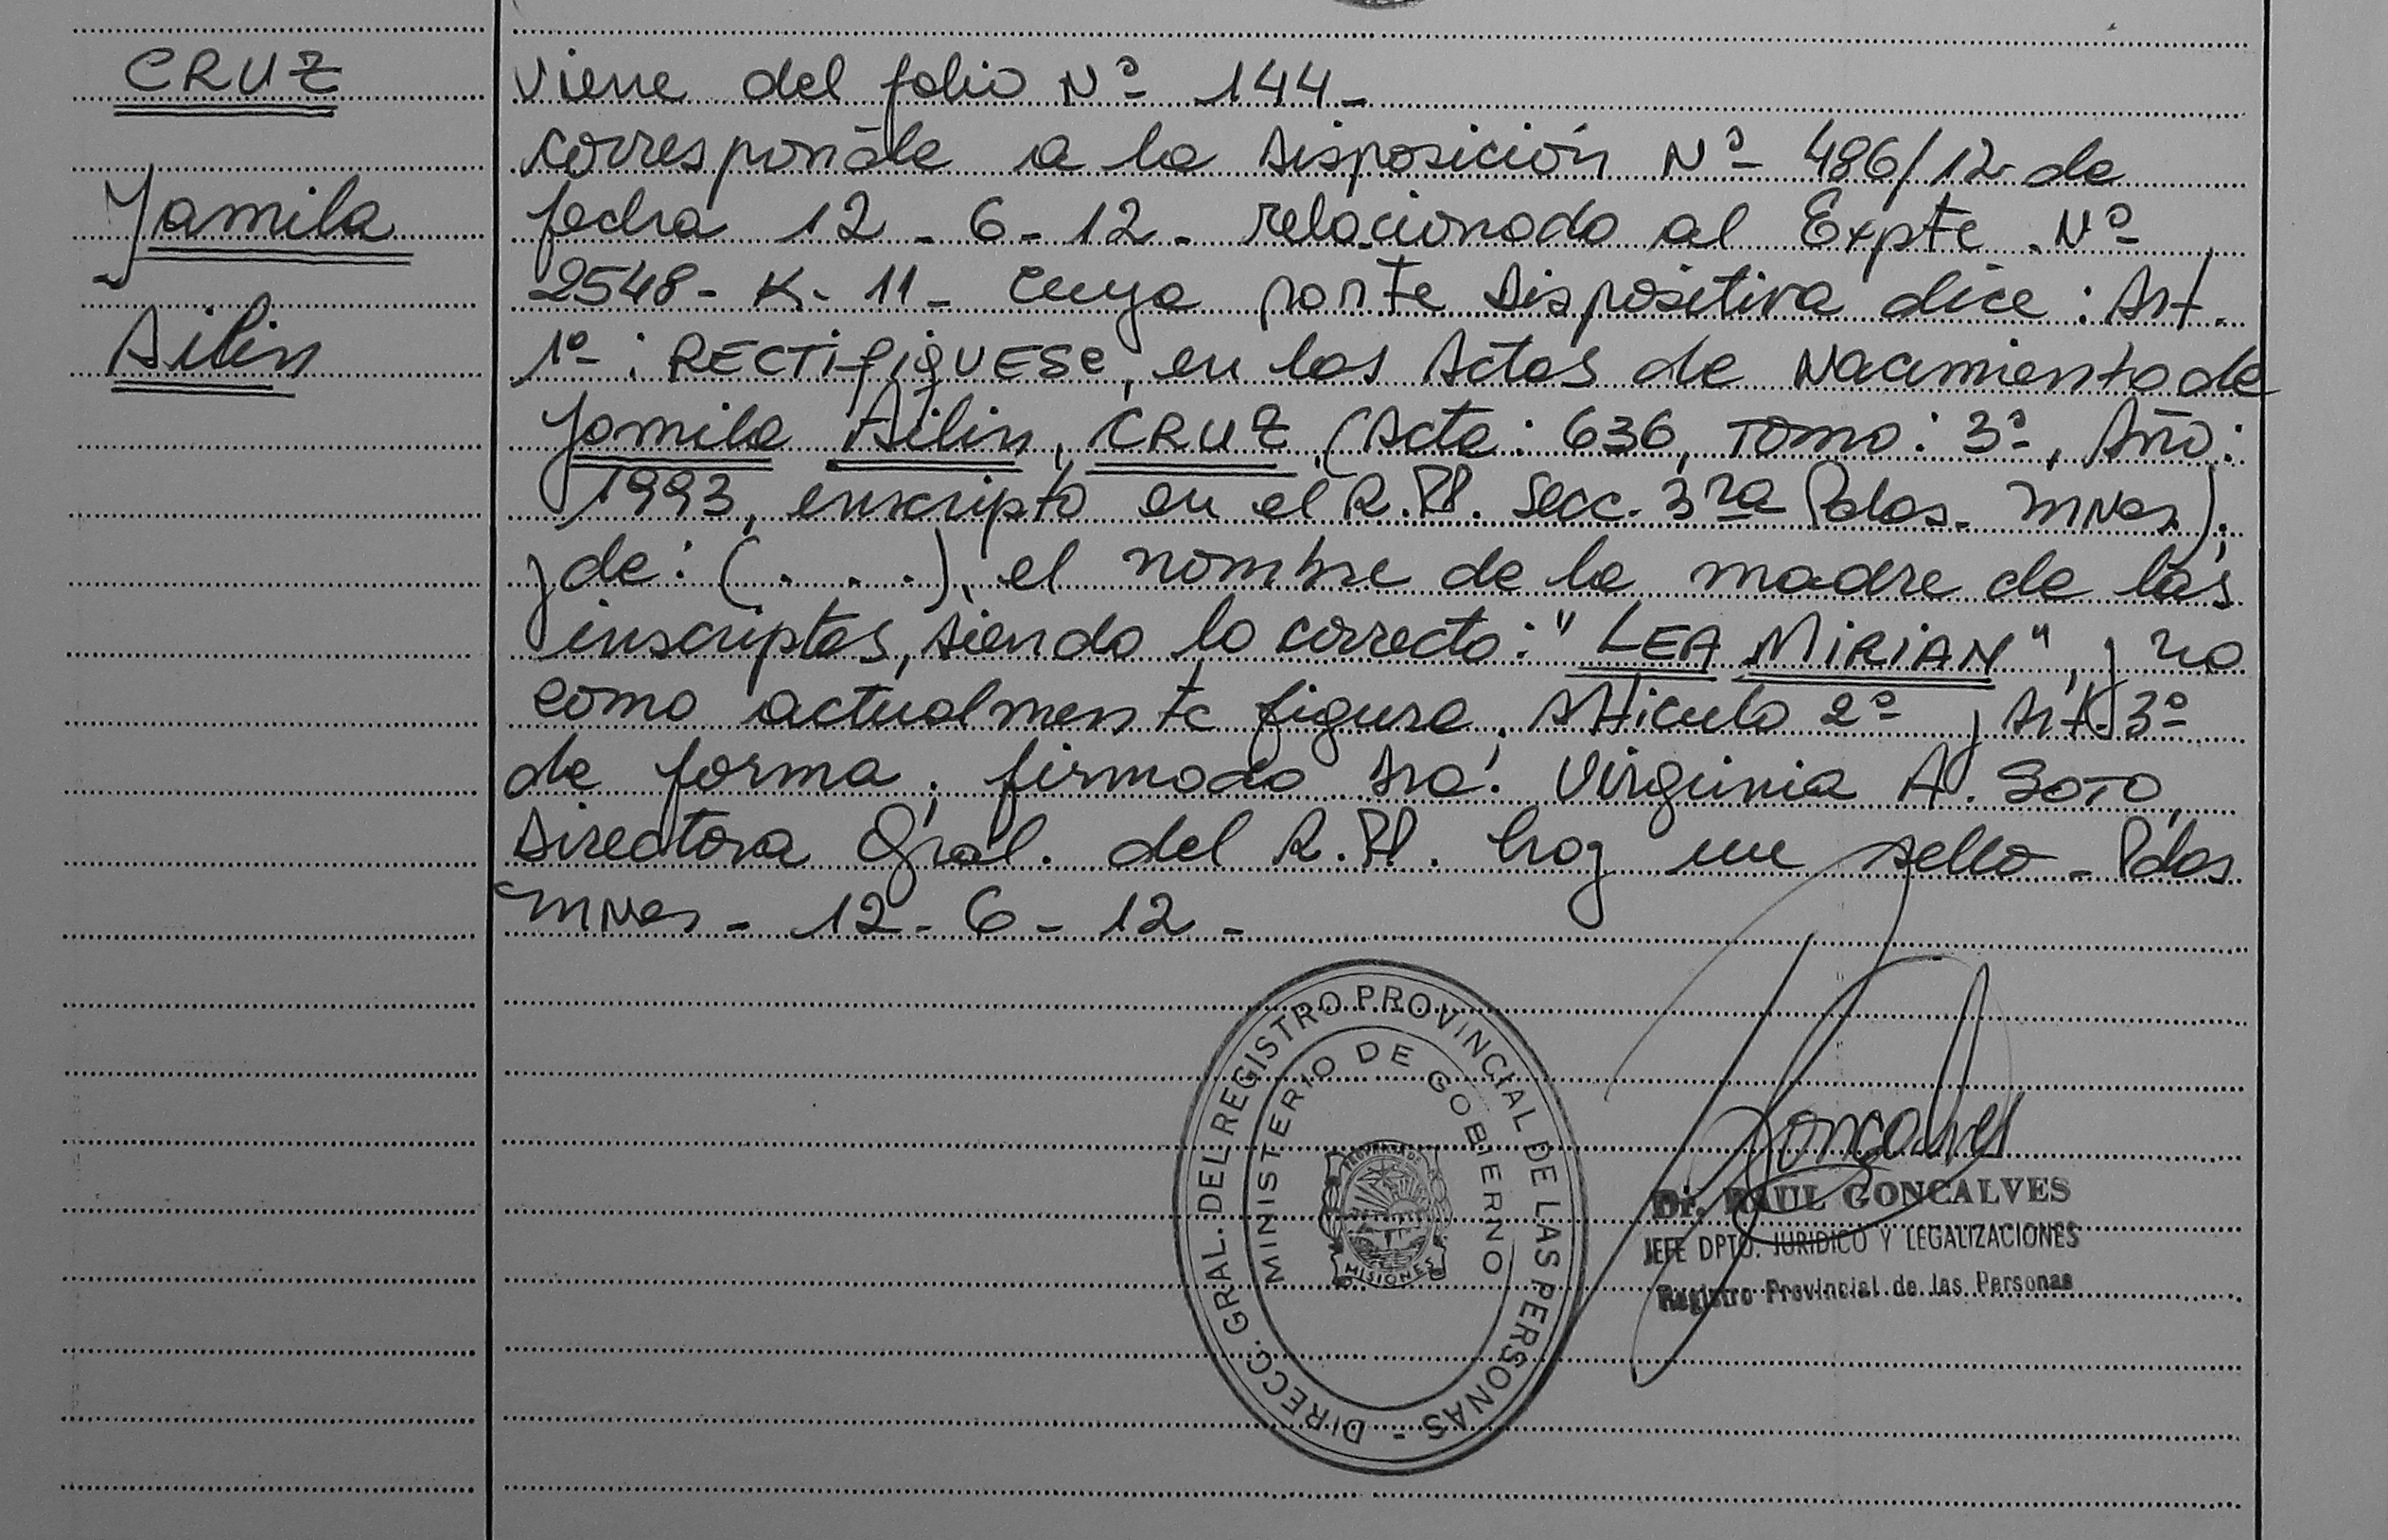 CRUZ
Yamila
Ailin
Viene del folio Nº 144-
corresponde a la disposición Nº 486/12 de
fecha 12-6-12- relacionado al Expte. Nº
2548-K-11- cuya parte dispositiva dice: Art.
1º: RECTIFIQUESE, en las Actas de Nacimiento de
Yamila Ailin, CRUZ (Acta: 636, Tomo: 3º, Año:
1993, inscripto en el R.P.P. Secc. 3ra Pdas. Mnes.);
y de: (. . . .), el nombre de la madre de las
inscriptas, siendo lo correcto: "LEA MIRIAN", y no
como actualmente figura. Articulo 2º y Art. 3º
de forma; firmado Sra. Virginia A. SOTO,
Directora Gral. del R.P.P. hay un sello- Pdas
Mnes- 12-6-12-
DIRECC. GRAL. DEL REGISTRO PROVINCIAL DE LAS PERSONAS -
MINISTERIO DE GOBIERNO
PROVINCIA DE
MISIONES
Goncalves
Dr. RAUL GONCALVES
JEFE DPTO. JURIDICO Y LEGALIZACIONES
Registro Provincial de las Personas